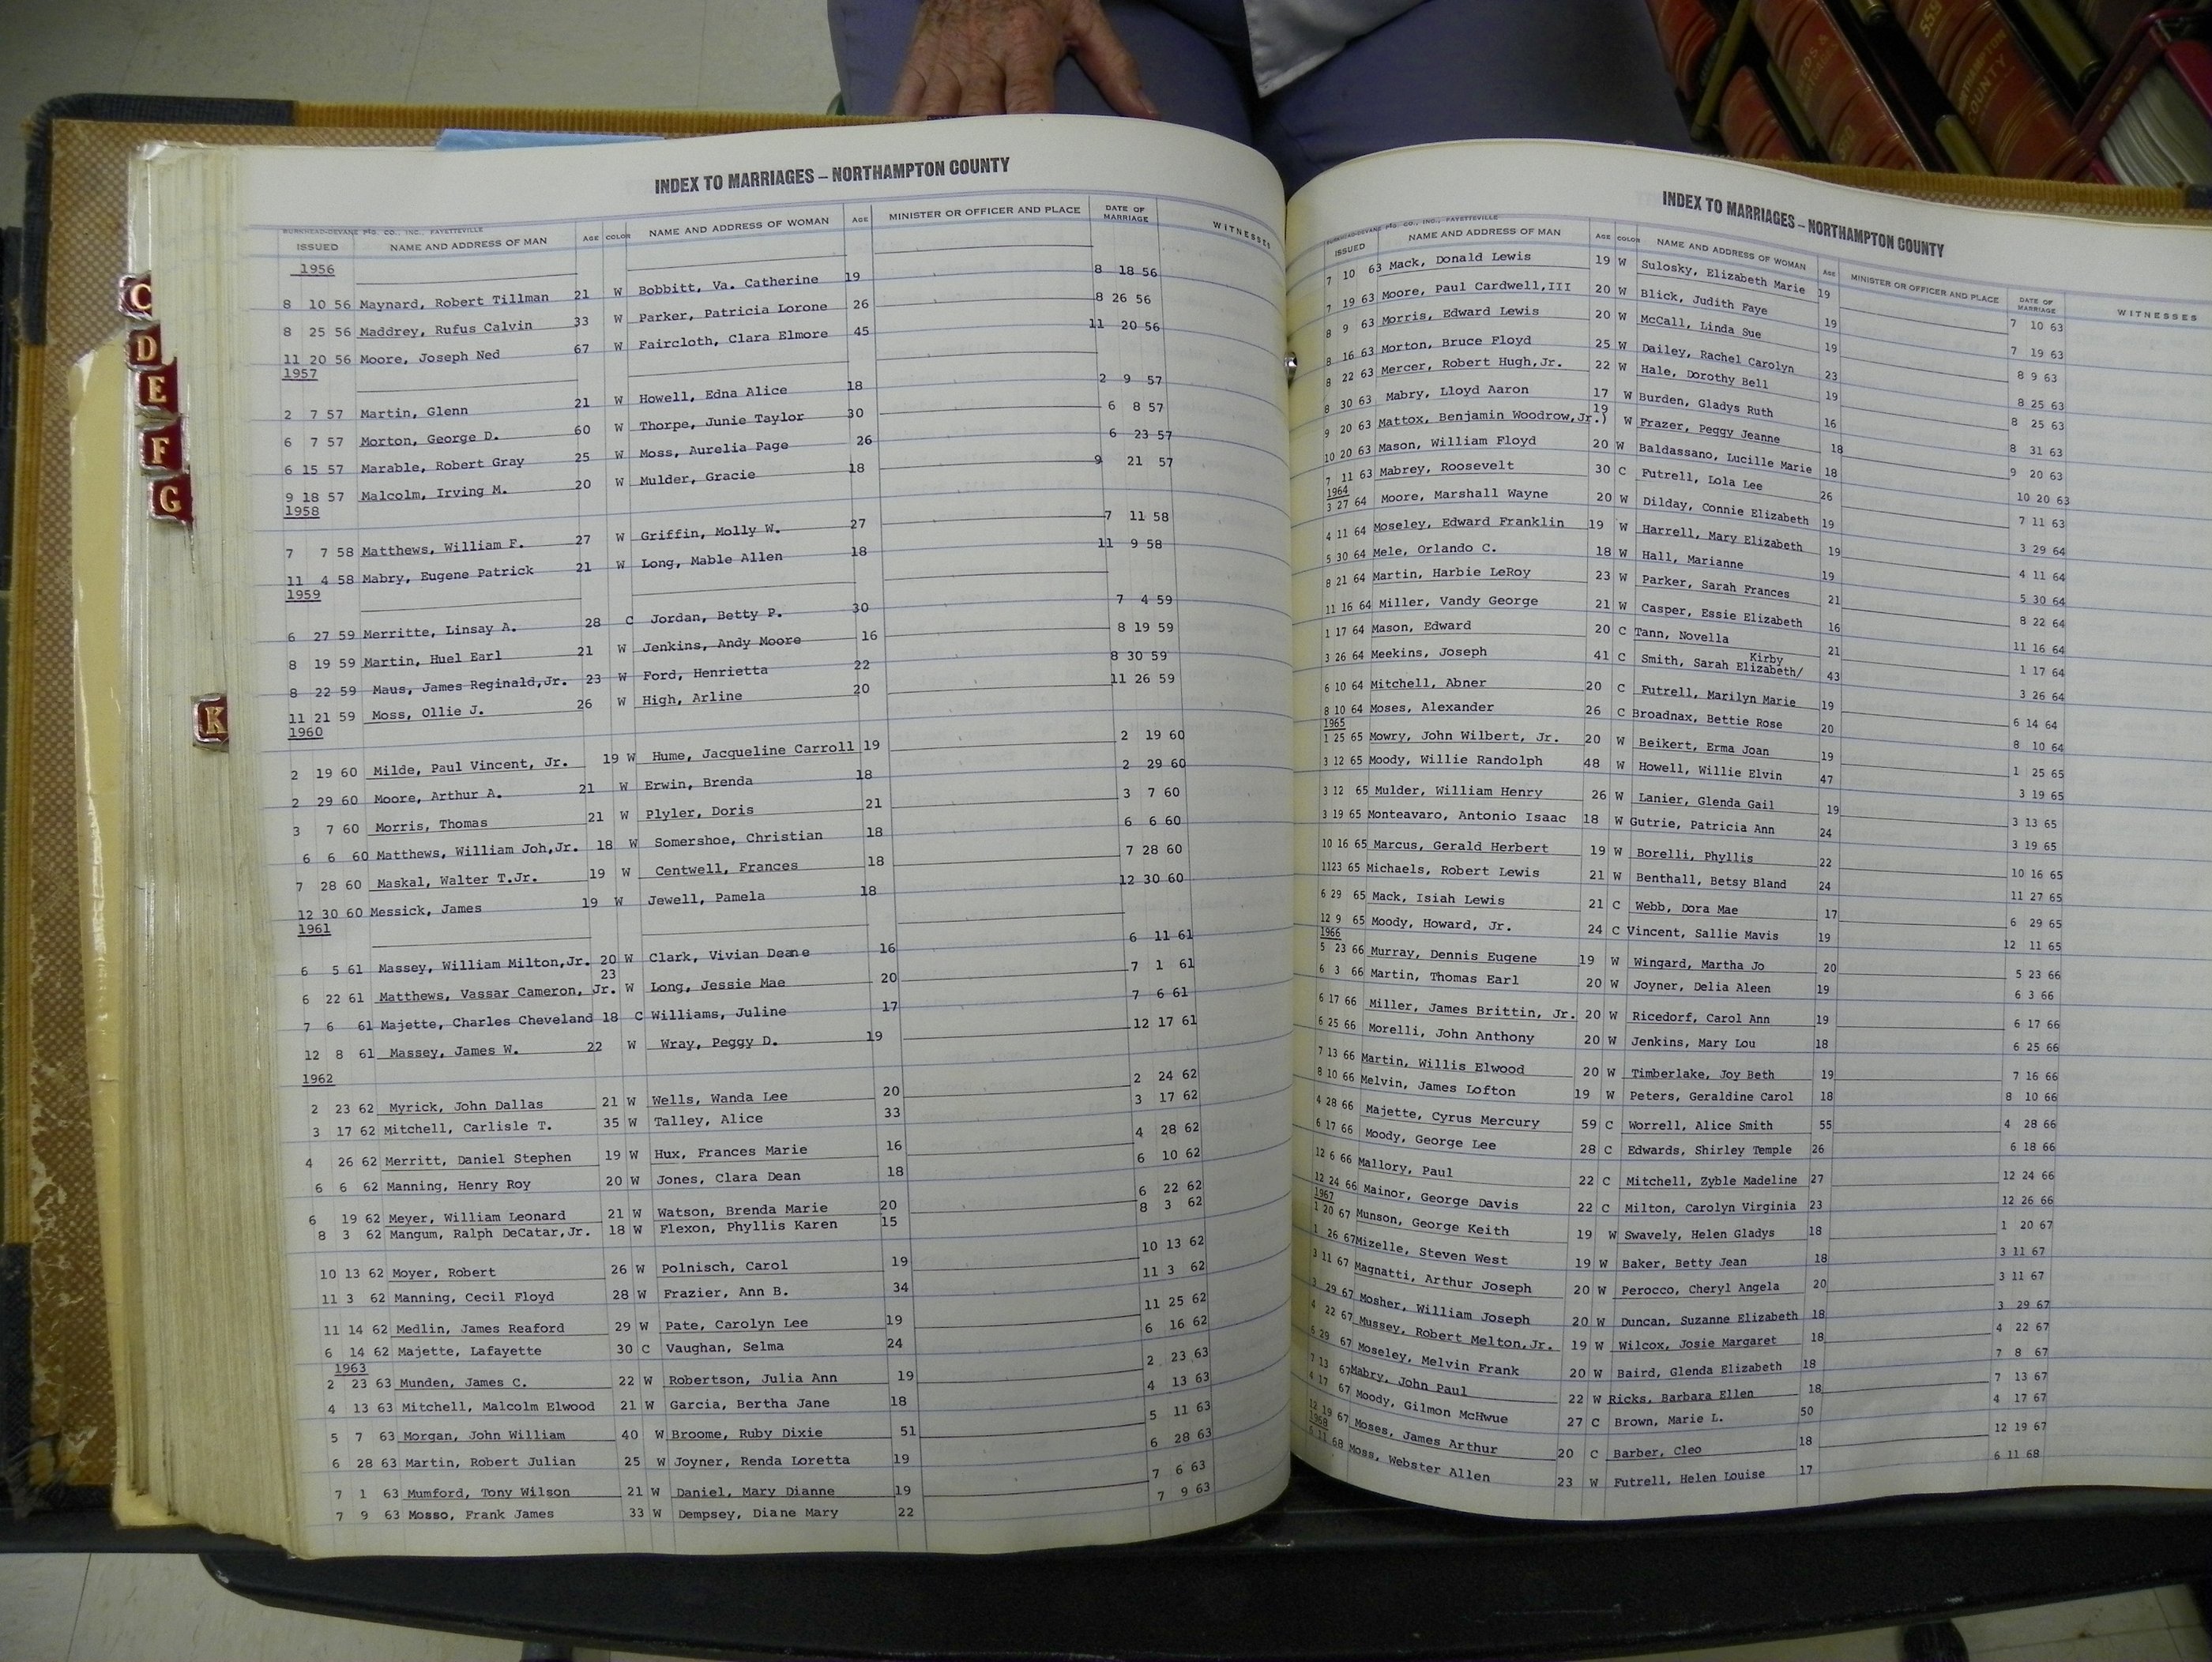 C
D
E
F
G
K
INDEX TO MARRIAGES – NORTHAMPTON COUNTY
BURKHEAD-DEVANE PTG. CO., INC., FAYETTEVILLE
ISSUED NAME AND ADDRESS OF MAN AGE COLOR NAME AND ADDRESS OF WOMAN AGE MINISTER OR OFFICER AND PLACE DATE OF MARRIAGE WITNESSES
1956
8 10 56 Maynard, Robert Tillman 21 W Bobbitt, Va. Catherine 19 8 18 56
8 25 56 Maddrey, Rufus Calvin 33 W Parker, Patricia Lorone 26 8 26 56
11 20 56 Moore, Joseph Ned 67 W Faircloth, Clara Elmore 45 11 20 56
1957
2 7 57 Martin, Glenn 21 W Howell, Edna Alice 18 2 9 57
6 7 57 Morton, George D. 60 W Thorpe, Junie Taylor 30 6 8 57
6 15 57 Marable, Robert Gray 25 W Moss, Aurelia Page 26 6 23 57
9 18 57 Malcolm, Irving M. 20 W Mulder, Gracie 18 9 21 57
1958
7 7 58 Matthews, William F. 27 W Griffin, Molly W. 27 7 11 58
11 4 58 Mabry, Eugene Patrick 21 W Long, Mable Allen 18 11 9 58
1959
6 27 59 Merritte, Linsay A. 28 C Jordan, Betty P. 30 7 4 59
8 19 59 Martin, Huel Earl 21 W Jenkins, Andy Moore 16 8 19 59
8 22 59 Maus, James Reginald,Jr. 23 W Ford, Henrietta 22 8 30 59
11 21 59 Moss, Ollie J. 26 W High, Arline 20 11 26 59
1960
2 19 60 Milde, Paul Vincent, Jr. 19 W Hume, Jacqueline Carroll 19 2 19 60
2 29 60 Moore, Arthur A. 21 W Erwin, Brenda 18 2 29 60
3 7 60 Morris, Thomas 21 W Plyler, Doris 21 3 7 60
6 6 60 Matthews, William Joh,Jr. 18 W Somershoe, Christian 18 6 6 60
7 28 60 Maskal, Walter T.Jr. 19 W Centwell, Frances 18 7 28 60
12 30 60 Messick, James 19 W Jewell, Pamela 18 12 30 60
1961
6 5 61 Massey, William Milton,Jr. 20 W Clark, Vivian Deane 16 6 11 61
6 22 61 Matthews, Vassar Cameron, Jr. 23 W Long, Jessie Mae 20 7 1 61
7 6 61 Majette, Charles Cheveland 18 C Williams, Juline 17 7 6 61
12 8 61 Massey, James W. 22 W Wray, Peggy D. 19 12 17 61
1962
2 23 62 Myrick, John Dallas 21 W Wells, Wanda Lee 20 2 24 62
3 17 62 Mitchell, Carlisle T. 35 W Talley, Alice 33 3 17 62
4 26 62 Merritt, Daniel Stephen 19 W Hux, Frances Marie 16 4 28 62
6 6 62 Manning, Henry Roy 20 W Jones, Clara Dean 18 6 10 62
6 19 62 Meyer, William Leonard 21 W Watson, Brenda Marie 20 6 22 62
8 3 62 Mangum, Ralph DeCatar,Jr. 18 W Flexon, Phyllis Karen 15 8 3 62
10 13 62 Moyer, Robert 26 W Polnisch, Carol 19 10 13 62
11 3 62 Manning, Cecil Floyd 28 W Frazier, Ann B. 34 11 3 62
11 14 62 Medlin, James Reaford 29 W Pate, Carolyn Lee 19 11 25 62
6 14 62 Majette, Lafayette 30 C Vaughan, Selma 24 6 16 62
1963
2 23 63 Munden, James C. 22 W Robertson, Julia Ann 19 2 23 63
4 13 63 Mitchell, Malcolm Elwood 21 W Garcia, Bertha Jane 18 4 13 63
5 7 63 Morgan, John William 40 W Broome, Ruby Dixie 51 5 11 63
6 28 63 Martin, Robert Julian 25 W Joyner, Renda Loretta 19 6 28 63
7 1 63 Mumford, Tony Wilson 21 W Daniel, Mary Dianne 19 7 6 63
7 9 63 Mosso, Frank James 33 W Dempsey, Diane Mary 22 7 9 63
INDEX TO MARRIAGES – NORTHAMPTON COUNTY
BURKHEAD-DEVANE PTG. CO., INC., FAYETTEVILLE
ISSUED NAME AND ADDRESS OF MAN AGE COLOR NAME AND ADDRESS OF WOMAN AGE MINISTER OR OFFICER AND PLACE DATE OF MARRIAGE WITNESSES
7 10 63 Mack, Donald Lewis 19 W Sulosky, Elizabeth Marie 19 7 10 63
7 19 63 Moore, Paul Cardwell,III 20 W Blick, Judith Faye 19 7 19 63
8 9 63 Morris, Edward Lewis 20 W McCall, Linda Sue 19 8 9 63
8 16 63 Morton, Bruce Floyd 25 W Dailey, Rachel Carolyn 23 8 25 63
8 22 63 Mercer, Robert Hugh,Jr. 22 W Hale, Dorothy Bell 19 8 25 63
8 30 63 Mabry, Lloyd Aaron 17 W Burden, Gladys Ruth 16 8 31 63
9 20 63 Mattox, Benjamin Woodrow,Jr.) 19 W Frazer, Peggy Jeanne 18 9 20 63
10 20 63 Mason, William Floyd 20 W Baldassano, Lucille Marie 18 10 20 63
7 11 63 Mabrey, Roosevelt 30 C Futrell, Lola Lee 26 7 11 63
1964
3 27 64 Moore, Marshall Wayne 20 W Dilday, Connie Elizabeth 19 3 29 64
4 11 64 Moseley, Edward Franklin 19 W Harrell, Mary Elizabeth 19 4 11 64
5 30 64 Mele, Orlando C. 18 W Hall, Marianne 19 5 30 64
8 21 64 Martin, Harbie LeRoy 23 W Parker, Sarah Frances 21 8 22 64
11 16 64 Miller, Vandy George 21 W Casper, Essie Elizabeth 16 11 16 64
1 17 64 Mason, Edward 20 C Tann, Novella 21 1 17 64
3 26 64 Meekins, Joseph 41 C Smith, Sarah Elizabeth/ Kirby 43 3 26 64
6 10 64 Mitchell, Abner 20 C Futrell, Marilyn Marie 19 6 14 64
8 10 64 Moses, Alexander 26 C Broadnax, Bettie Rose 20 8 10 64
1965
1 25 65 Mowry, John Wilbert, Jr. 20 W Beikert, Erma Joan 19 1 25 65
3 12 65 Moody, Willie Randolph 48 W Howell, Willie Elvin 47 3 19 65
3 12 65 Mulder, William Henry 26 W Lanier, Glenda Gail 19 3 13 65
3 19 65 Monteavaro, Antonio Isaac 18 W Gutrie, Patricia Ann 24 3 19 65
10 16 65 Marcus, Gerald Herbert 19 W Borelli, Phyllis 22 10 16 65
1123 65 Michaels, Robert Lewis 21 W Benthall, Betsy Bland 24 11 27 65
6 29 65 Mack, Isiah Lewis 21 C Webb, Dora Mae 17 6 29 65
12 9 65 Moody, Howard, Jr. 24 C Vincent, Sallie Mavis 19 12 11 65
1966
5 23 66 Murray, Dennis Eugene 19 W Wingard, Martha Jo 20 5 23 66
6 3 66 Martin, Thomas Earl 20 W Joyner, Delia Aleen 19 6 3 66
6 17 66 Miller, James Brittin, Jr. 20 W Ricedorf, Carol Ann 19 6 17 66
6 25 66 Morelli, John Anthony 20 W Jenkins, Mary Lou 18 6 25 66
7 13 66 Martin, Willis Elwood 20 W Timberlake, Joy Beth 19 7 16 66
8 10 66 Melvin, James Lofton 19 W Peters, Geraldine Carol 18 8 10 66
4 28 66 Majette, Cyrus Mercury 59 C Worrell, Alice Smith 55 4 28 66
6 17 66 Moody, George Lee 28 C Edwards, Shirley Temple 26 6 18 66
12 6 66 Mallory, Paul 22 C Mitchell, Zyble Madeline 27 12 24 66
12 24 66 Mainor, George Davis 22 C Milton, Carolyn Virginia 23 12 26 66
1967
1 20 67 Munson, George Keith 19 W Swavely, Helen Gladys 18 1 20 67
1 26 67 Mizelle, Steven West 19 W Baker, Betty Jean 18 3 11 67
3 11 67 Magnatti, Arthur Joseph 20 W Perocco, Cheryl Angela 20 3 11 67
3 29 67 Mosher, William Joseph 20 W Duncan, Suzanne Elizabeth 18 3 29 67
4 22 67 Mussey, Robert Melton,Jr. 19 W Wilcox, Josie Margaret 18 4 22 67
6 29 67 Moseley, Melvin Frank 20 W Baird, Glenda Elizabeth 18 7 8 67
7 13 67 Mabry, John Paul 22 W Ricks, Barbara Ellen 18 7 13 67
4 17 67 Moody, Gilmon McHwue 27 C Brown, Marie L. 50 4 17 67
12 19 67 Moses, James Arthur 20 C Barber, Cleo 18 12 19 67
1968
6 11 68 Moss, Webster Allen 23 W Futrell, Helen Louise 17 6 11 68
559
NORTHAMPTON COUNTY